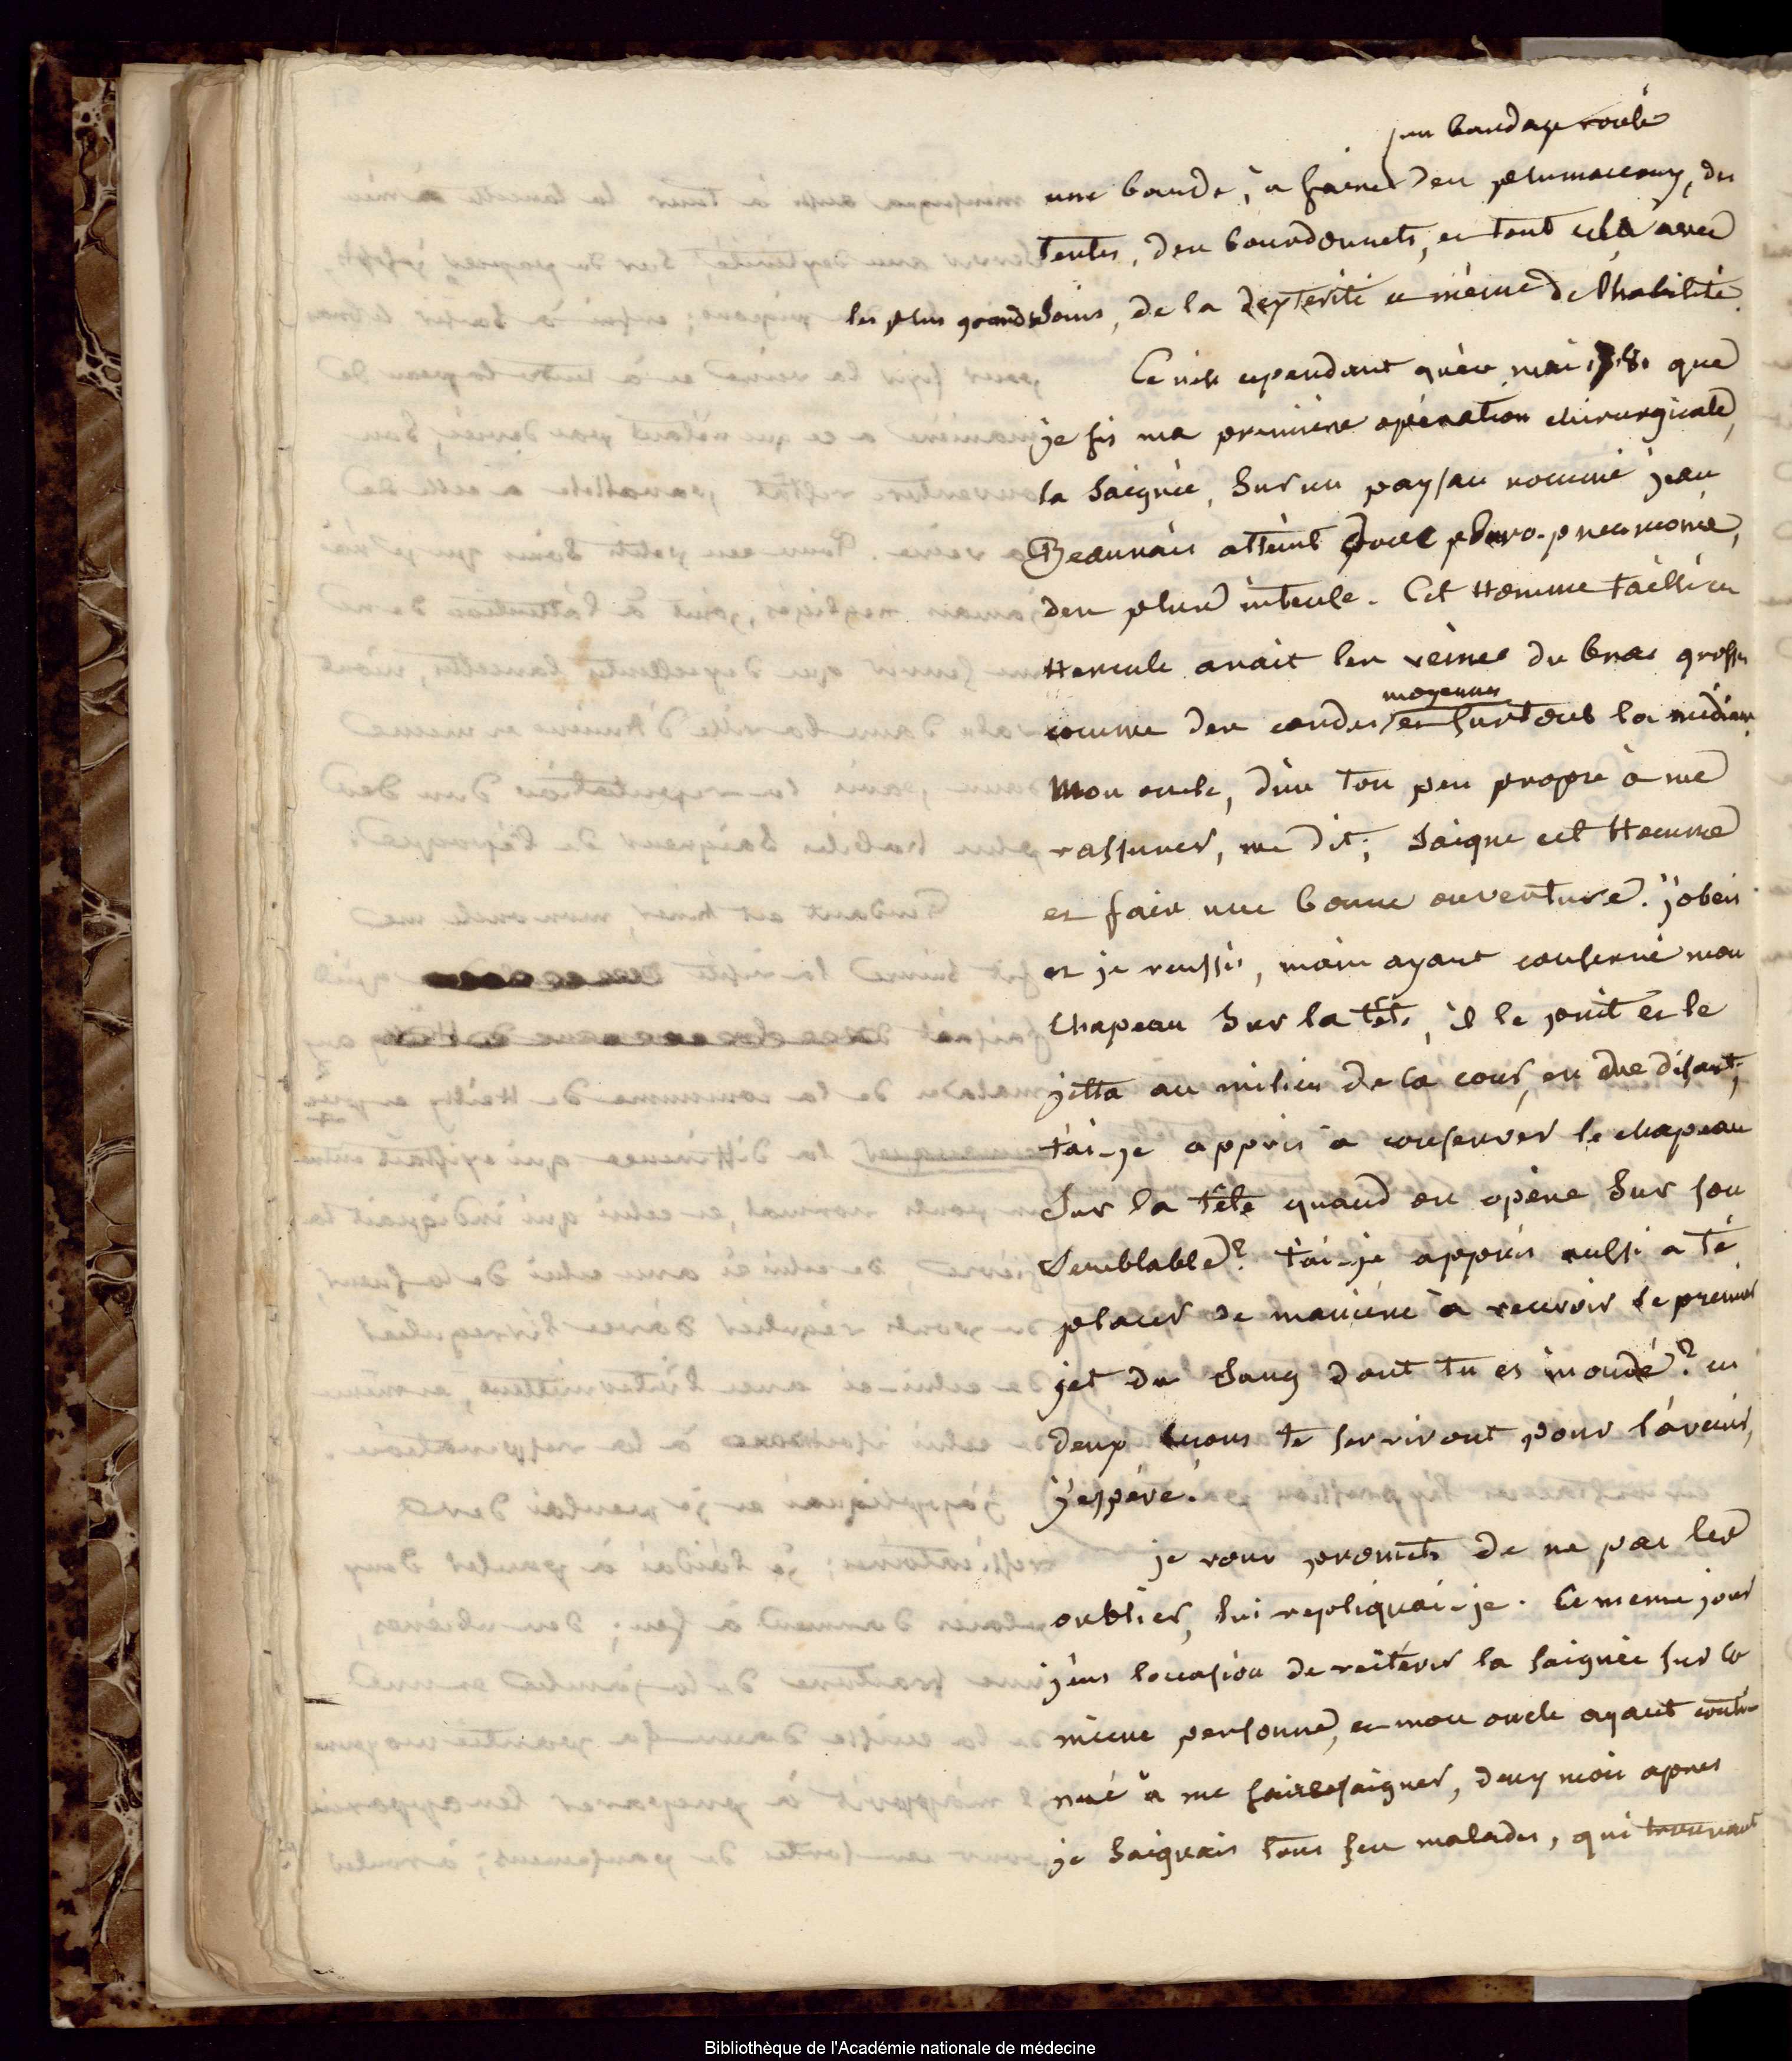 un bandage roulé
une bande, à faire des plumaceaux, des
tentes, des bourdonnets, et tout cela avec
les plus grands soins, de la dexterité et même de l'habilité.
Ce n'est cependant qu'en mai 1781 que
je fis ma première opération chirurgicale,
la saignée, sur un paysan nommé jean
Beauvais atteint d'une pleuro-pneumonie,
des plus intense. Cet Homme taillé en
Hercule avait les veines du bras grosses
moyennes
comme des cordes et surtout la médiane.
Mon oncle, d'un ton peu propre à me
rassurer, me dit; saigne cet Homme
et fais une bonne ouverture. j'obéis
et je reussis, mais ayant conservé mon
chapeau sur la tête, il le prit et le
jetta au milieu de la cour, en me disant;
t'ai-je appris à conserver le chapeau
sur la tête quand on opère sur son
semblable? t'ai-je appris aussi a te
placer de manière à recevoir le premier
jet du sang dont tu es inondé? ces
deux leçons te serviront pour l'avenir,
j'espère.
je vous promets de ne pas les
oublier, lui repliquai-je. Ce meme jour
j'eus l'occasion de reitérer la saignée sur la
même personne, et mon oncle ayant conti-
nué à me faire saigner, deux mois apres
je saignais tous ses malades, qui trouvaient
Bibliothèque de l'Académie nationale de médecine